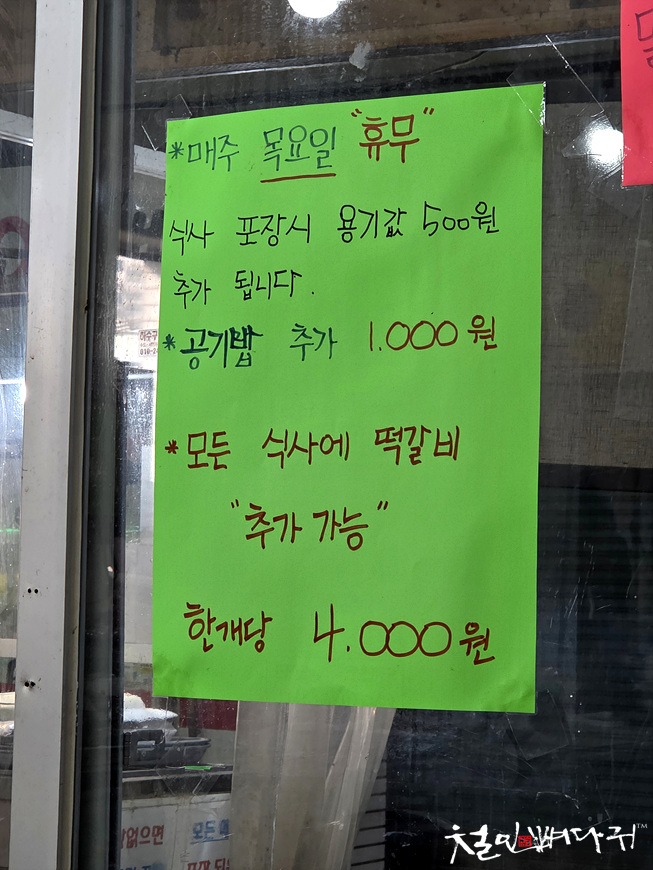 *매주 목요일 "휴무"
식사 포장시 용기값 500원
추가 됩니다.
*공기밥 추가 1.000원
*모든 식사에 떡갈비
"추가 가능"
한개당 4.000원
없으면
모든
철인뼈다귀™